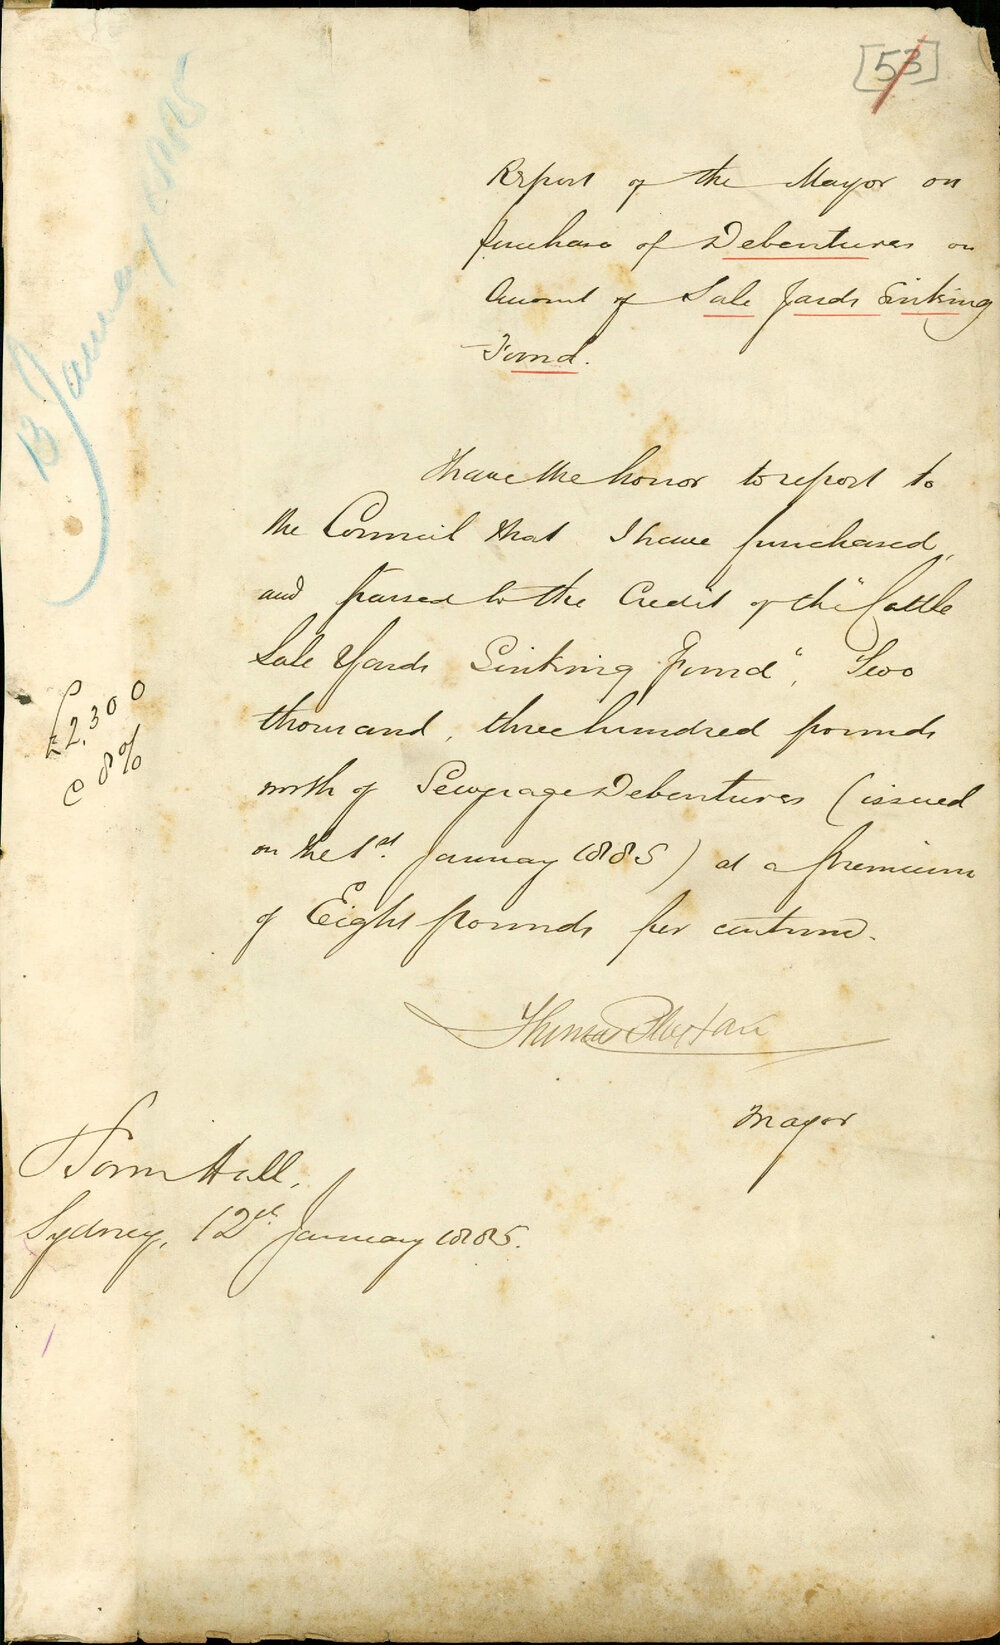 [53]
Report of the Mayor on
purchase of Debentures on
Account of Sale Yards Sinking
Fund.
13 January 1885
I have the honor to report to
the Council that I have purchased,
and passed to the Credit of the "Cattle
Sale Yards Sinking Fund", Two
thousand, three hundred pounds
worth of Sewerage Debentures (issued
on the 1st. January 1885) at a premium
of Eight pounds per centum.
£2,300
@ 8%
Thomas Playfair
Mayor
Town Hall,
Sydney, 12th January 1885.